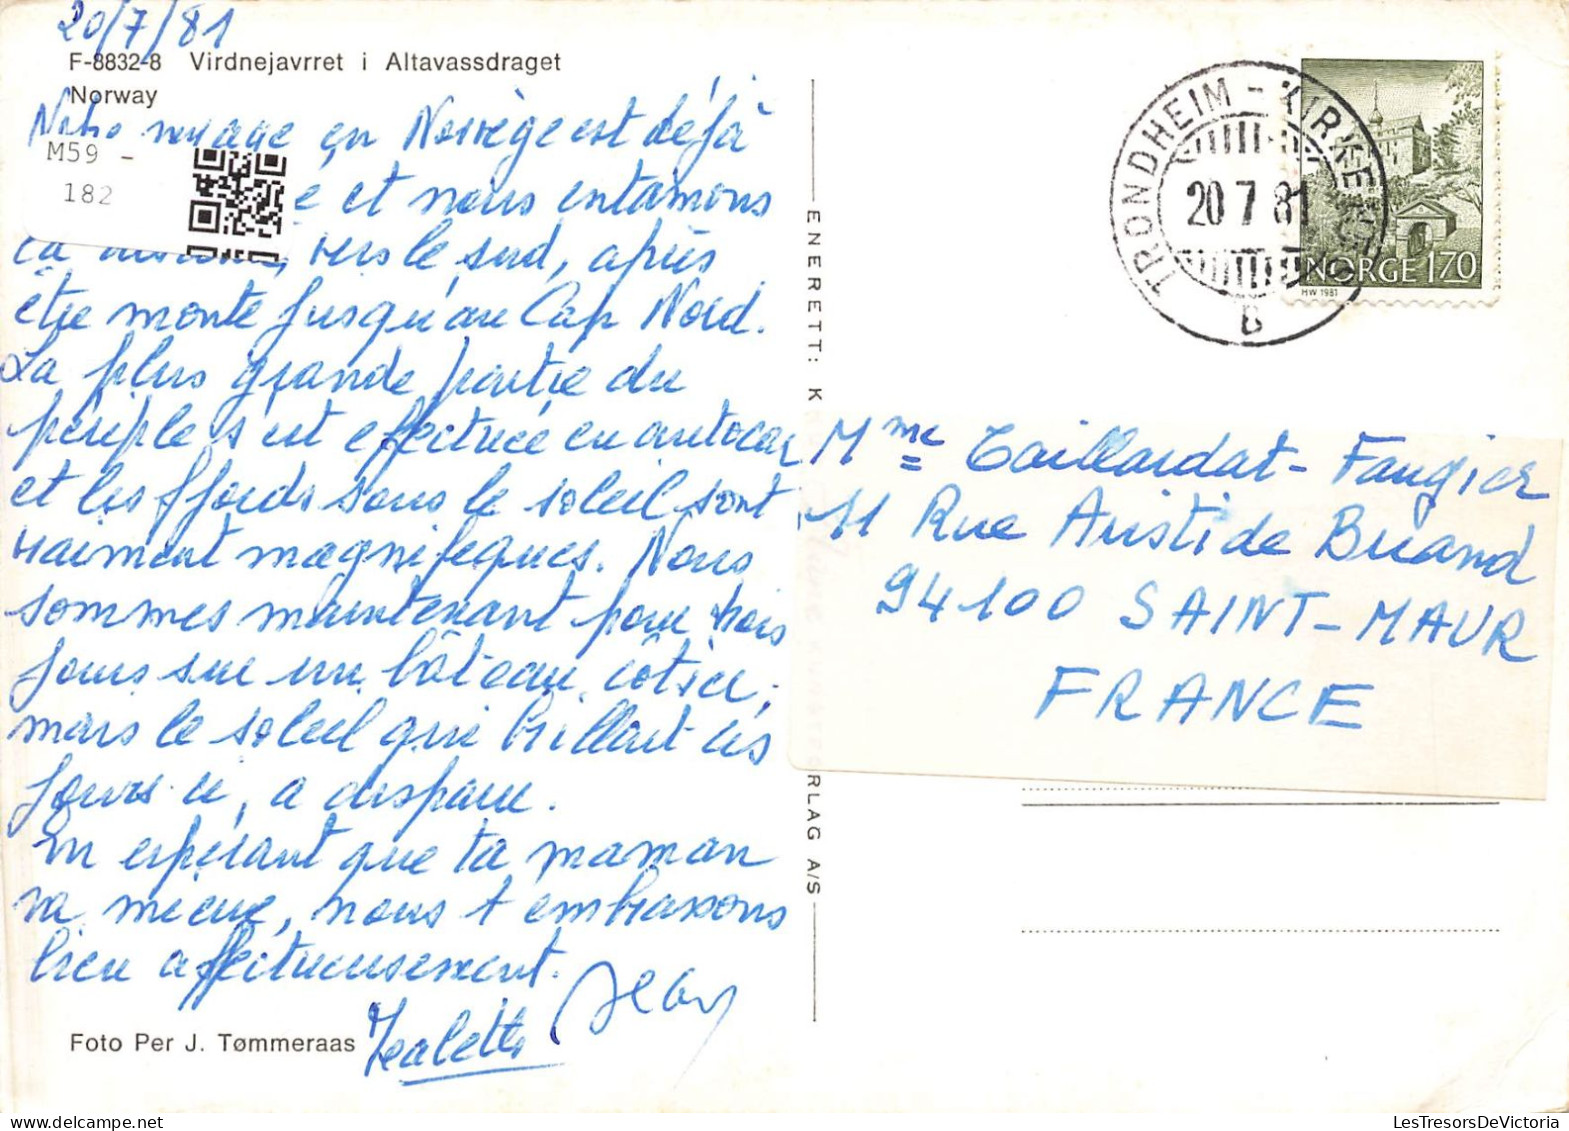 20/7/81
F-8832-8 Virdnejavrret i Altavassdraget
Norway
Notre voyage en Norvège est déjà
M59 -
182
et nous entamons
la vers le sud, après
être monté jusqu'au Cap Nord.
La plus grande partie du
périple s'est effectuée en autocar
et les fjords sous le soleil sont
vraiment magnifiques. Nous
sommes maintenant pour trois
jours sur un bâteau côtier,
mais le soleil qui brillait ces
jours ci, a disparu.
En espérant que ta maman
va mieux, nous t'embrassons
bien affectueusement.
Jean
Foto Per J. Tømmeraas
ENERETT: K
RLAG A/S
TRONDHEIM - KIRKENES
20 7 81
B
NORGE 170
HW 1981
Mme Taillardat - Faugier
11 Rue Aristide Briand
94100 SAINT-MAUR
FRANCE
LesTresorsDeVictoria